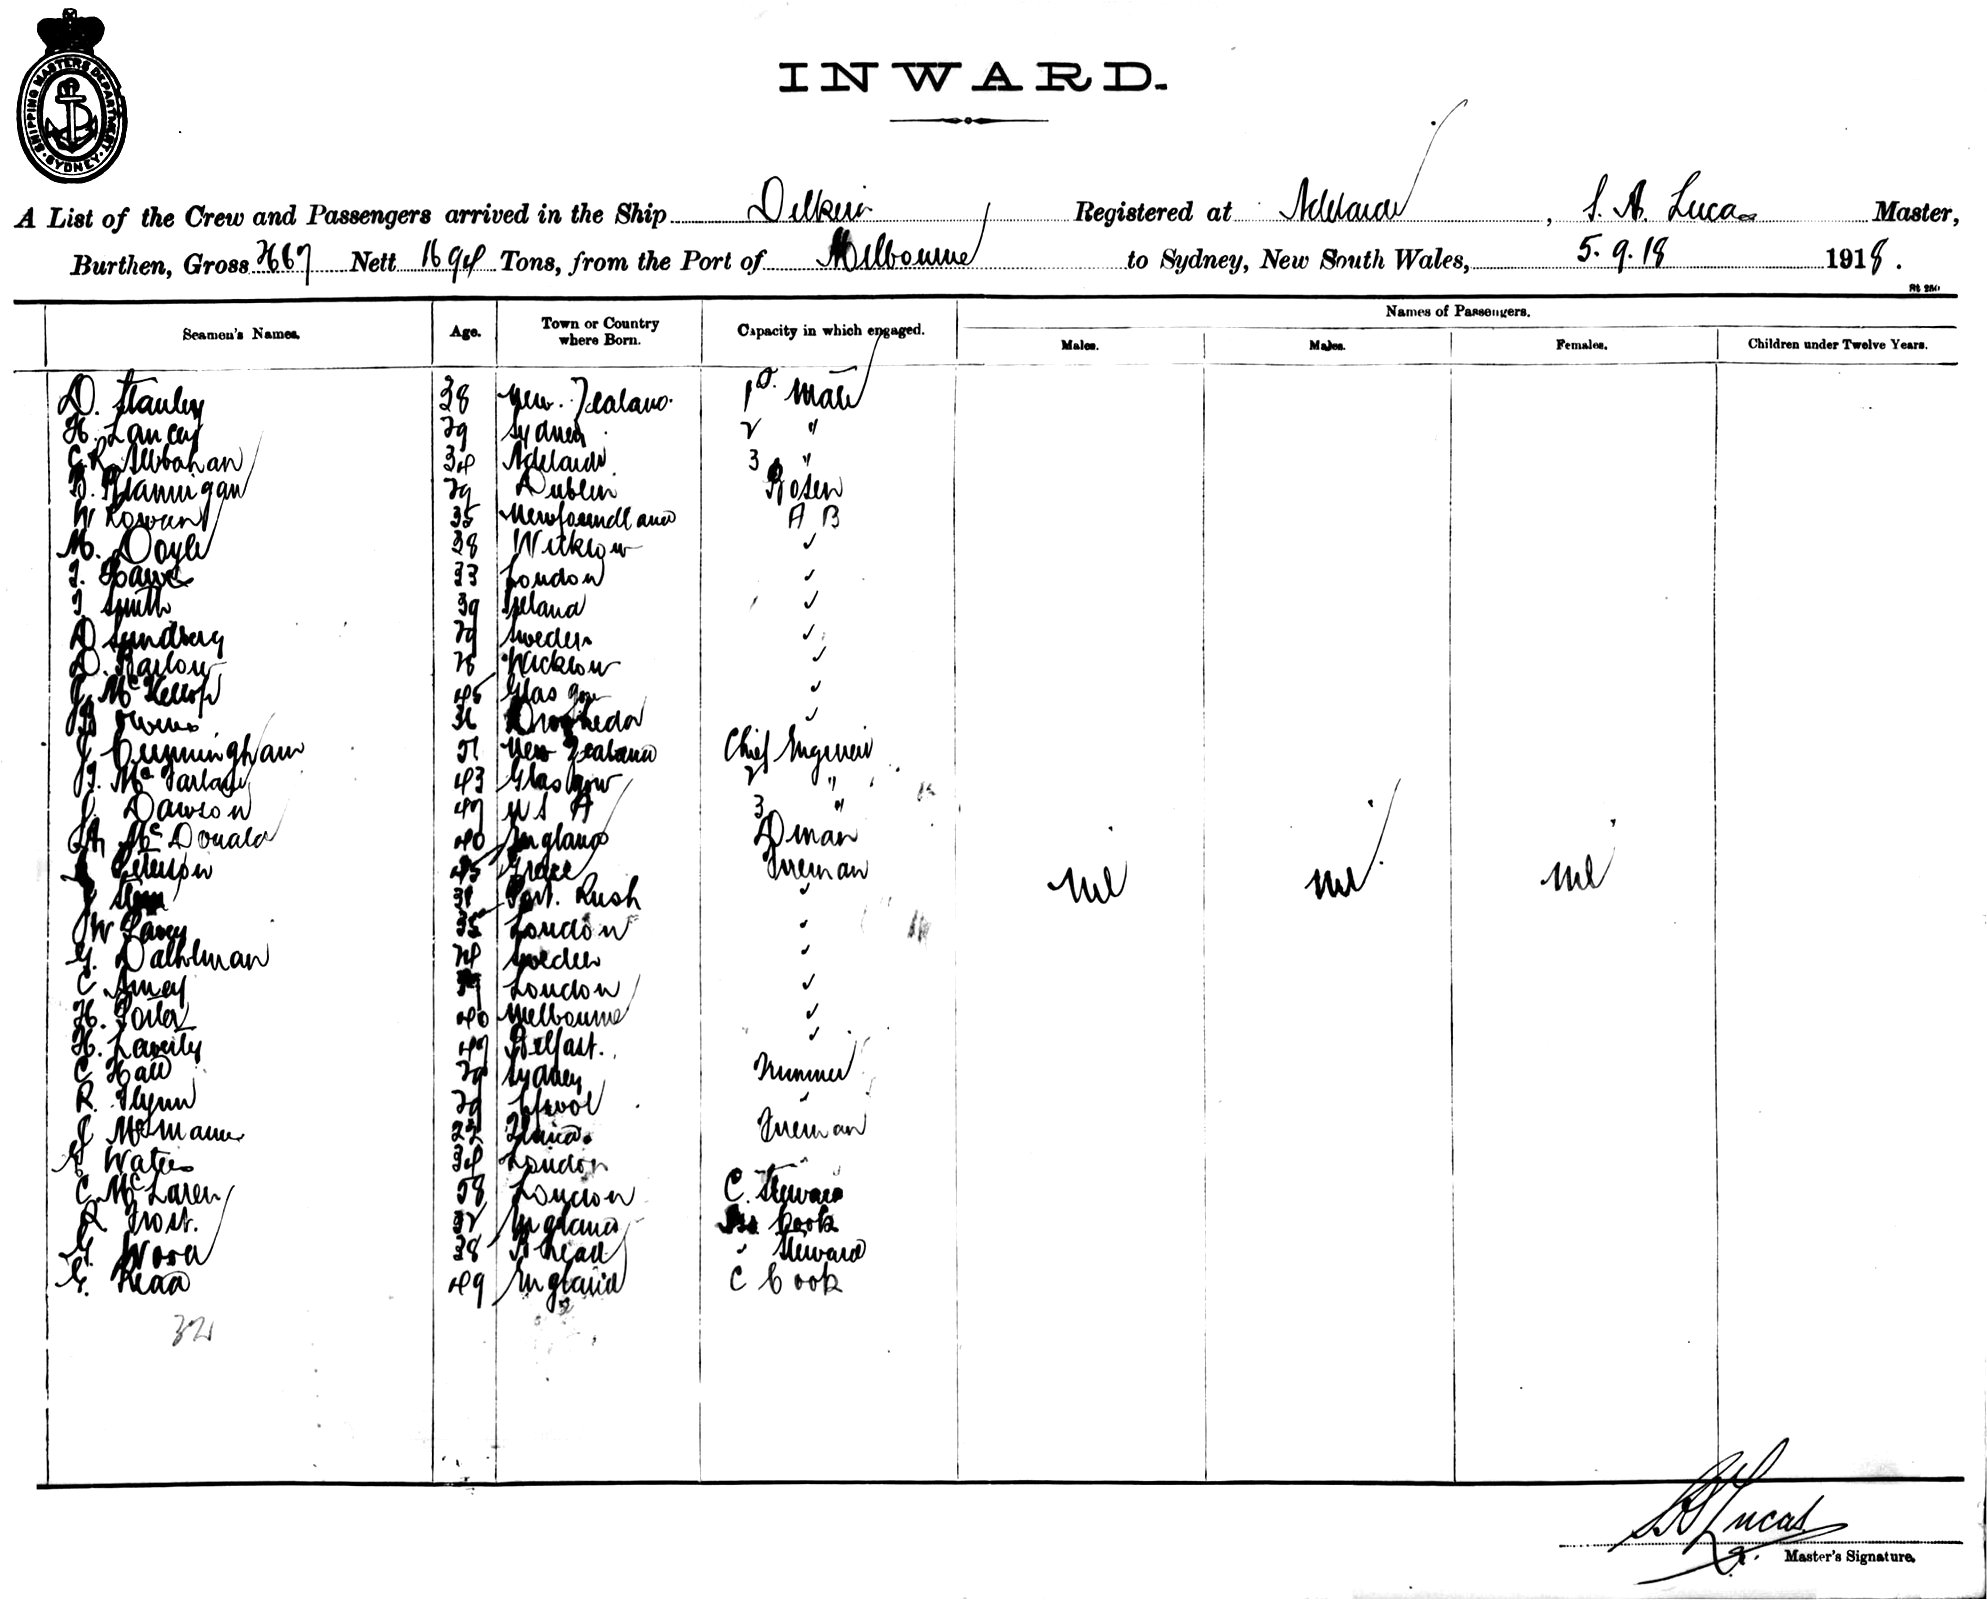 SHIPPING MASTERS DEPARTMENT · SYDNEY ·
INWARD.
A List of the Crew and Passengers arrived in the Ship Dilkera Registered at Adelaide, S. A. Lucas Master,
Burthen, Gross Nett 1694 Tons, from the Port of Melbourne to Sydney, New South Wales, 5. 9. 18 1918.
Seamen's Names. Age. Town or Country where Born. Capacity in which engaged. Names of Passengers.
Males. Males. Females. Children under Twelve Years.
D. Stanley 38 New Zealand 1st Mate
H. Lancey 29 Sydney 2 "
C R 34 Adelaide 3 "
B. Flannigan 29 Dublin Bosen
W Rowan 35 Newfoundland A B
M. Doyle 38 Wicklow "
33 London "
J Smith 39 Ireland "
D Sundberg 29 Sweden "
D. Barlow 26 Wicklow "
J. McKellop 45 Glasgow "
Owens 36 "
J Cunningham 51 New Zealand Chief Engineer
J. McFarlane 43 Glasgow 2 "
J. Dawson 47 U S A 3 "
A McDonald 40 England Dman
Peterson 45 Greece Fireman
Port Rush "
W 35 London "
G. Dalhlman 24 Sweden "
C Amey London "
H. Porter 40 Melbourne "
H. Laverty 47 Belfast. "
C Hall 29 Sydney Trimmer
R. Flynn 29 L'pool "
J McManus 22 Fireman
G. Waters 34 London "
C. McLaren 58 London C. Steward
R Frost. 32 England Cook
G. Wood 38 B head " Steward
G. Read 49 England C Cook
nil nil nil
32
S A Lucas
Master's Signature.